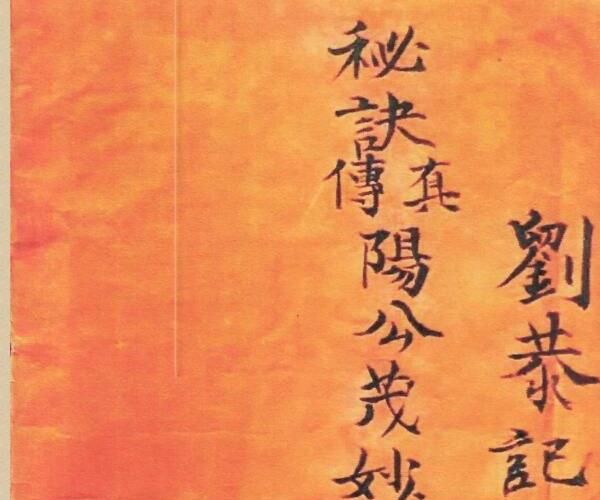 劉恭記
秘訣真傳陽公茂妙